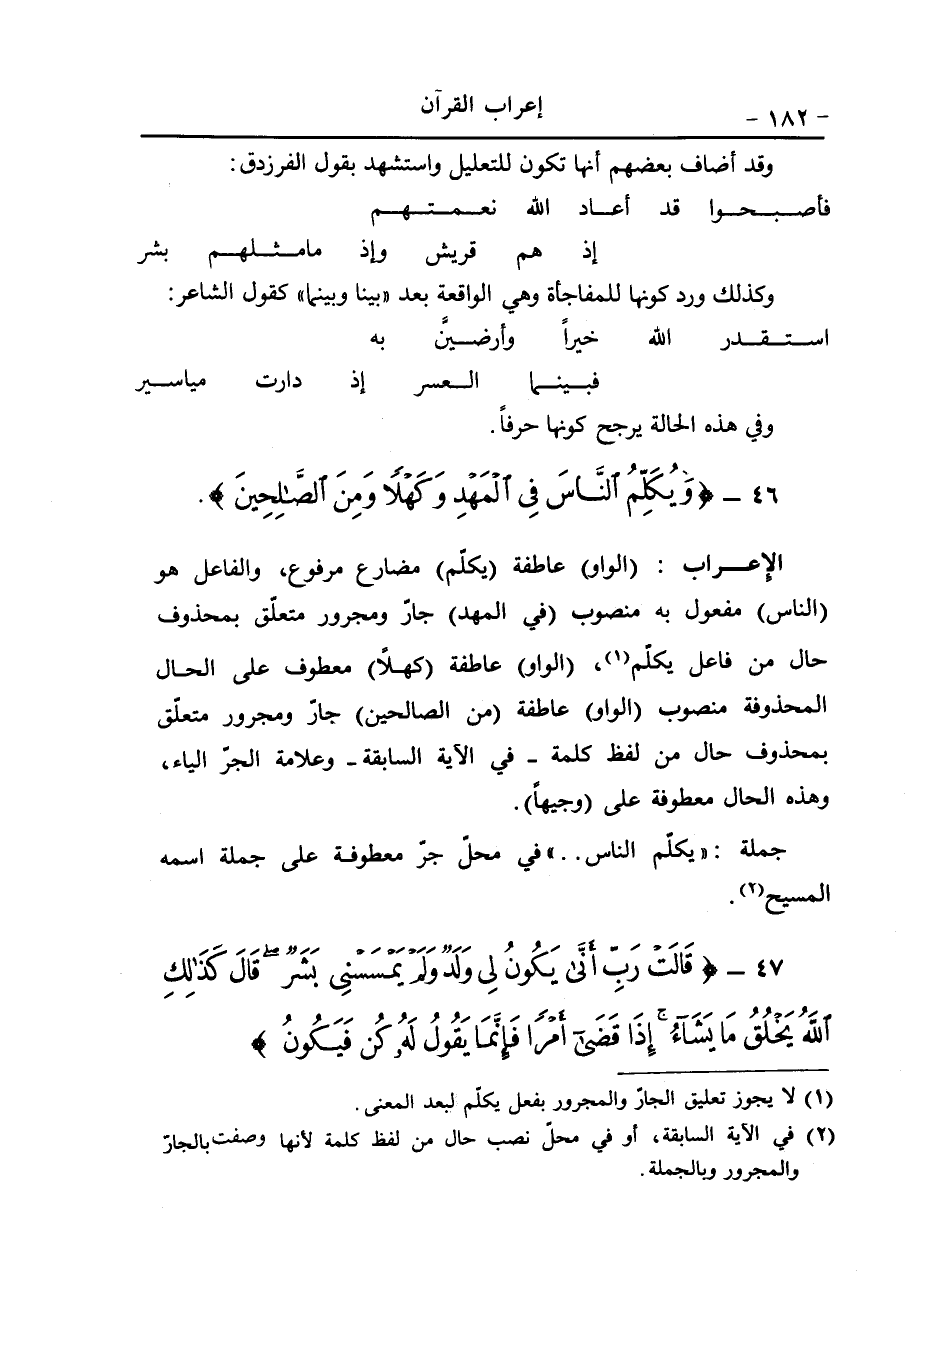 - ١٨٢ -
إعراب القرآن
وقد أضاف بعضهم أنها تكون للتعليل واستشهد بقول الفرزدق:
فأصبحوا قد أعاد الله نعمتهم
إذ هم قريش وإذ مامثلهم بشر
وكذلك ورد كونها للمفاجأة وهي الواقعة بعد «بينا وبينما» كقول الشاعر:
استقدر الله خيراً وأرضينَّ به
فبينما العسر إذ دارت مياسير
وفي هذه الحالة يرجح كونها حرفاً.
٤٦ - ﴿وَيُكَلِّمُ ٱلنَّاسَ فِى ٱلْمَهْدِ وَكَهْلًا وَمِنَ ٱلصَّٰلِحِينَ﴾.
الإعراب : (الواو) عاطفة (يكلّم) مضارع مرفوع، والفاعل هو
(الناس) مفعول به منصوب (في المهد) جارّ ومجرور متعلّق بمحذوف
حال من فاعل يكلّم(١)، (الواو) عاطفة (كهلًا) معطوف على الحال
المحذوفة منصوب (الواو) عاطفة (من الصالحين) جارّ ومجرور متعلّق
بمحذوف حال من لفظ كلمة - في الآية السابقة - وعلامة الجرّ الياء،
وهذه الحال معطوفة على (وجيهاً).
جملة : «يكلّم الناس..» في محلّ جرّ معطوفة على جملة اسمه
المسيح(٢).
٤٧ - ﴿قَالَتْ رَبِّ أَنَّىٰ يَكُونُ لِى وَلَدٌ وَلَمْ يَمْسَسْنِى بَشَرٌ ۖ قَالَ كَذَٰلِكِ
ٱللَّهُ يَخْلُقُ مَا يَشَآءُ ۚ إِذَا قَضَىٰٓ أَمْرًا فَإِنَّمَا يَقُولُ لَهُۥ كُن فَيَكُونُ﴾
(١) لا يجوز تعليق الجارّ والمجرور بفعل يكلّم لبعد المعنى.
(٢) في الآية السابقة، أو في محلّ نصب حال من لفظ كلمة لأنها وصفت بالجارّ
والمجرور وبالجملة.